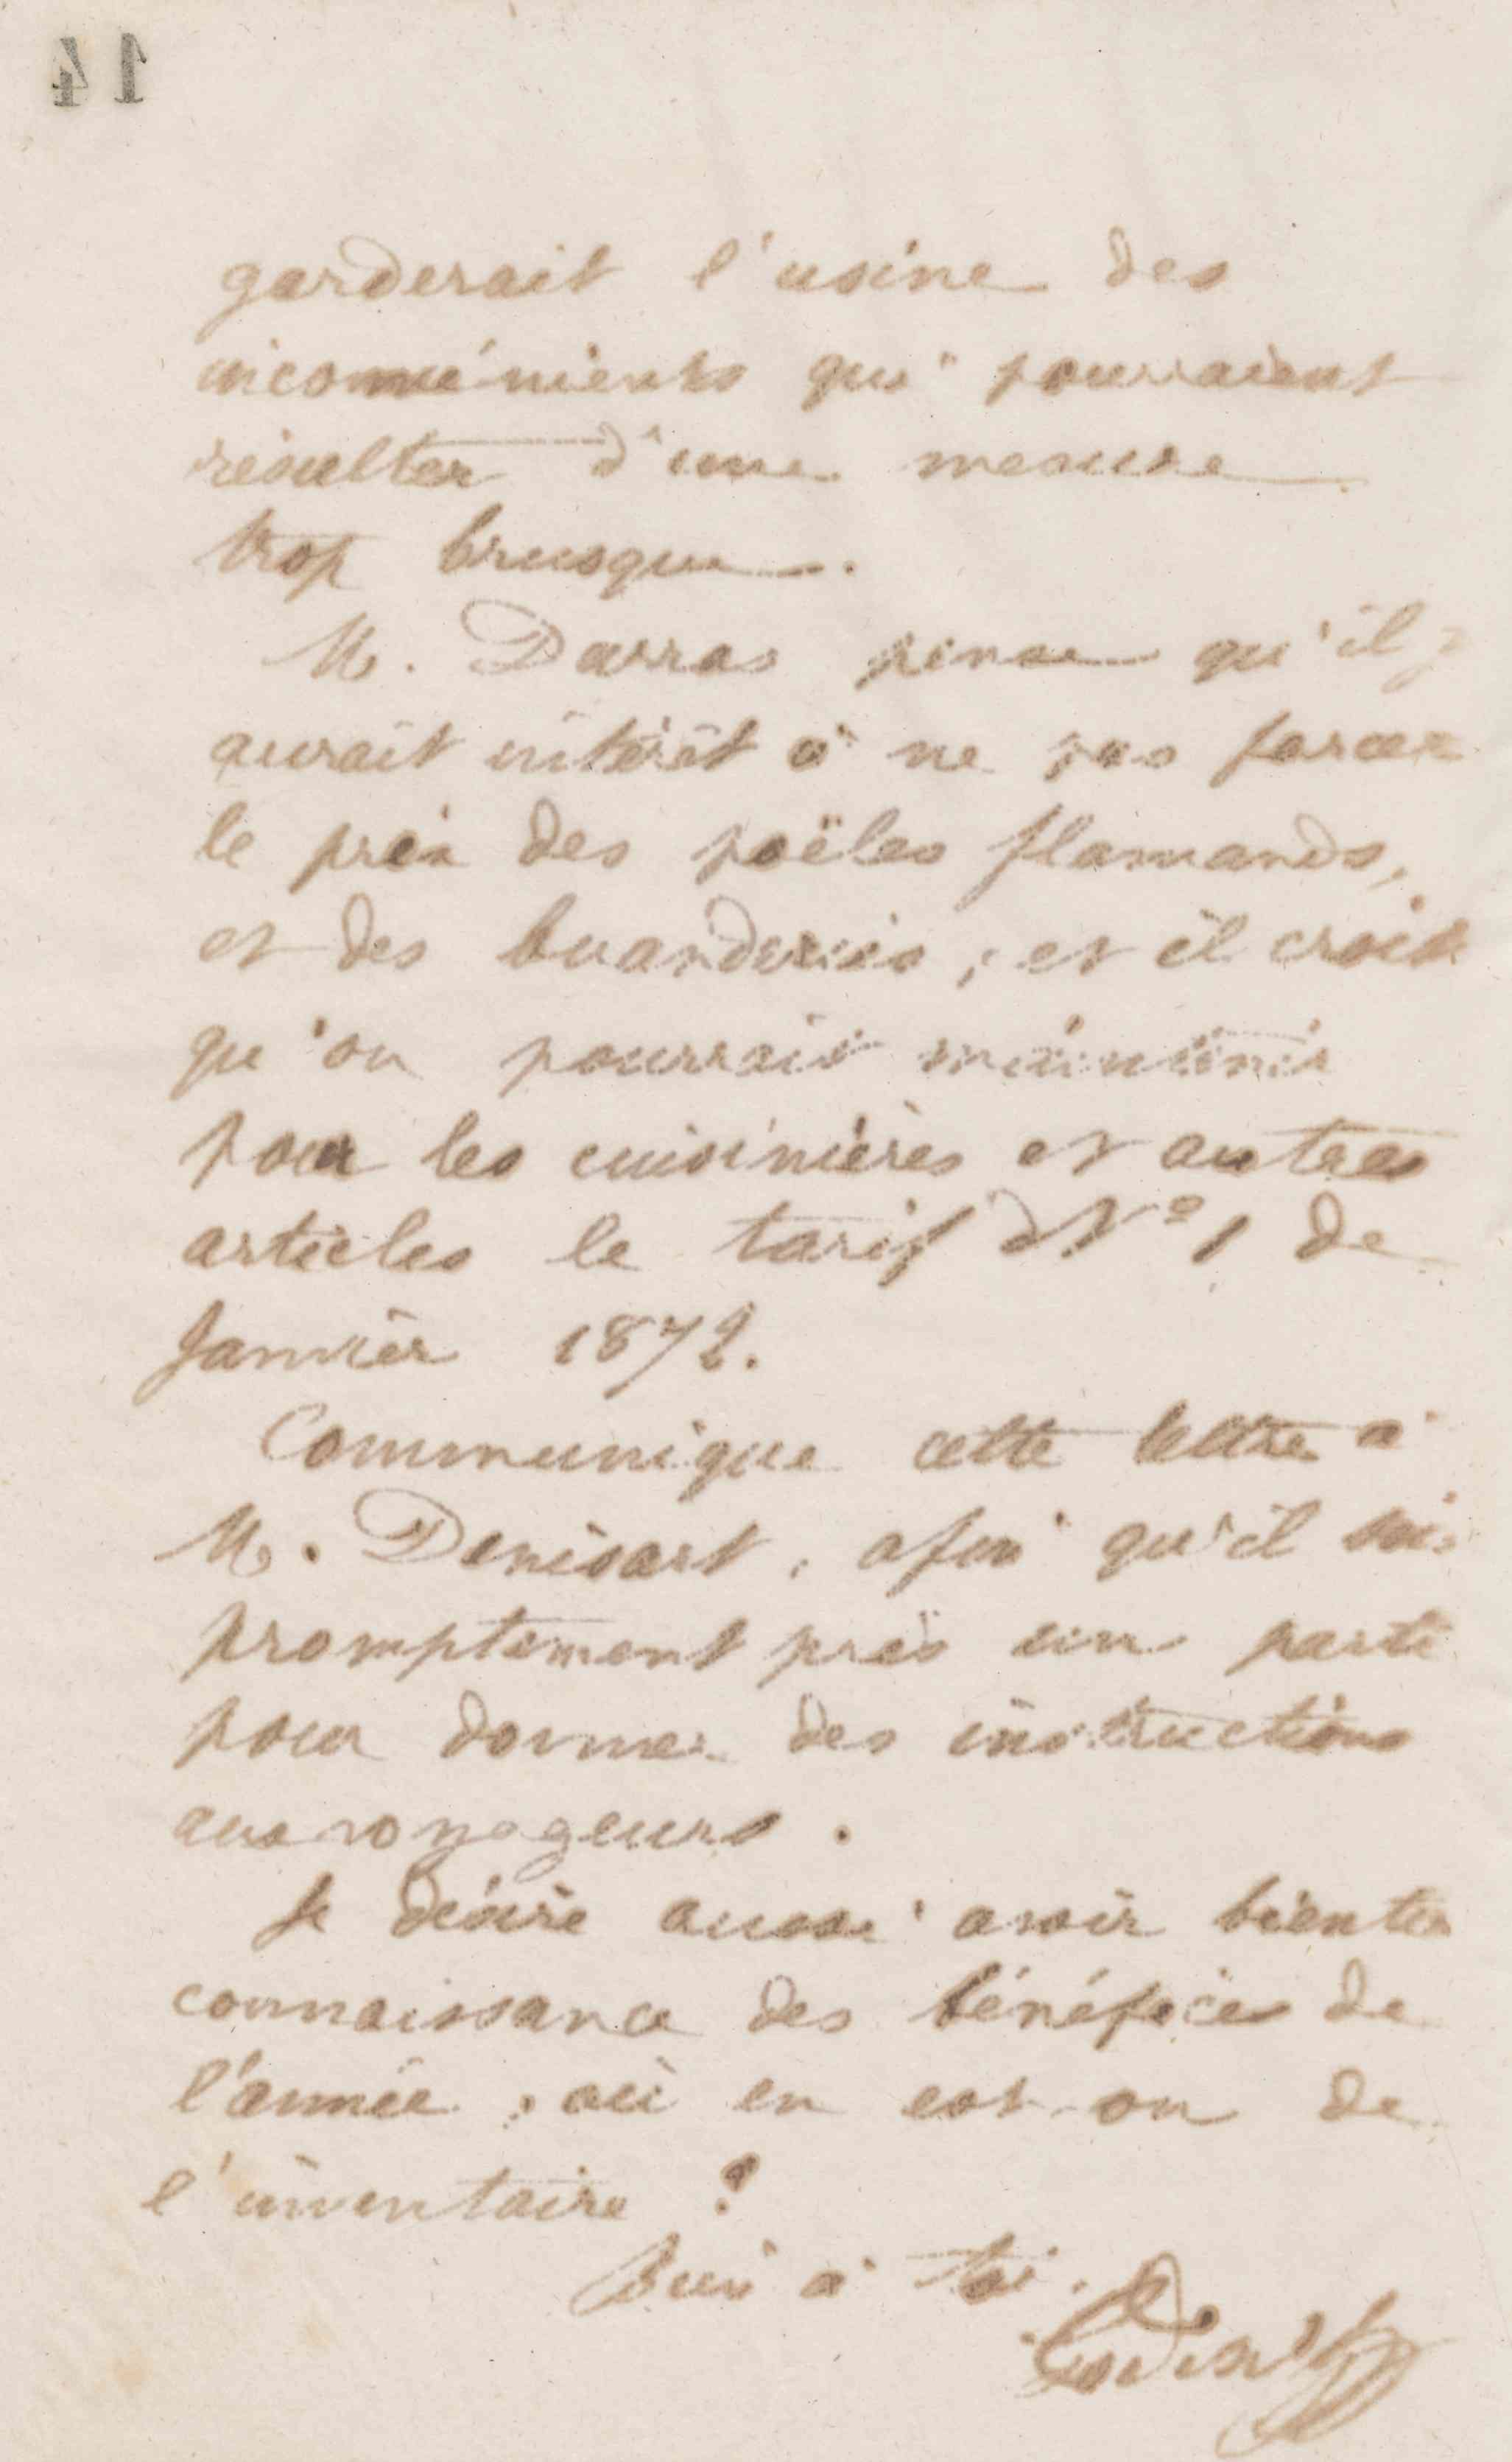 14
garderait l'usine des
inconvénients qui pourraient
résulter d'une mesure
trop brusque.
M. Darras pense qu'il y
aurait intérêt à ne pas forcer
le prix des poëles flamands,
et des buanderies ; et il croit
qu'on pourrait maintenir
pour les cuisinières et autres
articles le tarif N° 1 de
Janvier 1872.
Communique cette lettre à
M. Denisart, afin qu'il soit
promptement pris un parti
pour donner des instructions
aux voyageurs.
Je désire aussi avoir bientôt
connaissance des bénéfices de
l'année ; où en est-on de
l'inventaire ?
Bien à toi.
Godin